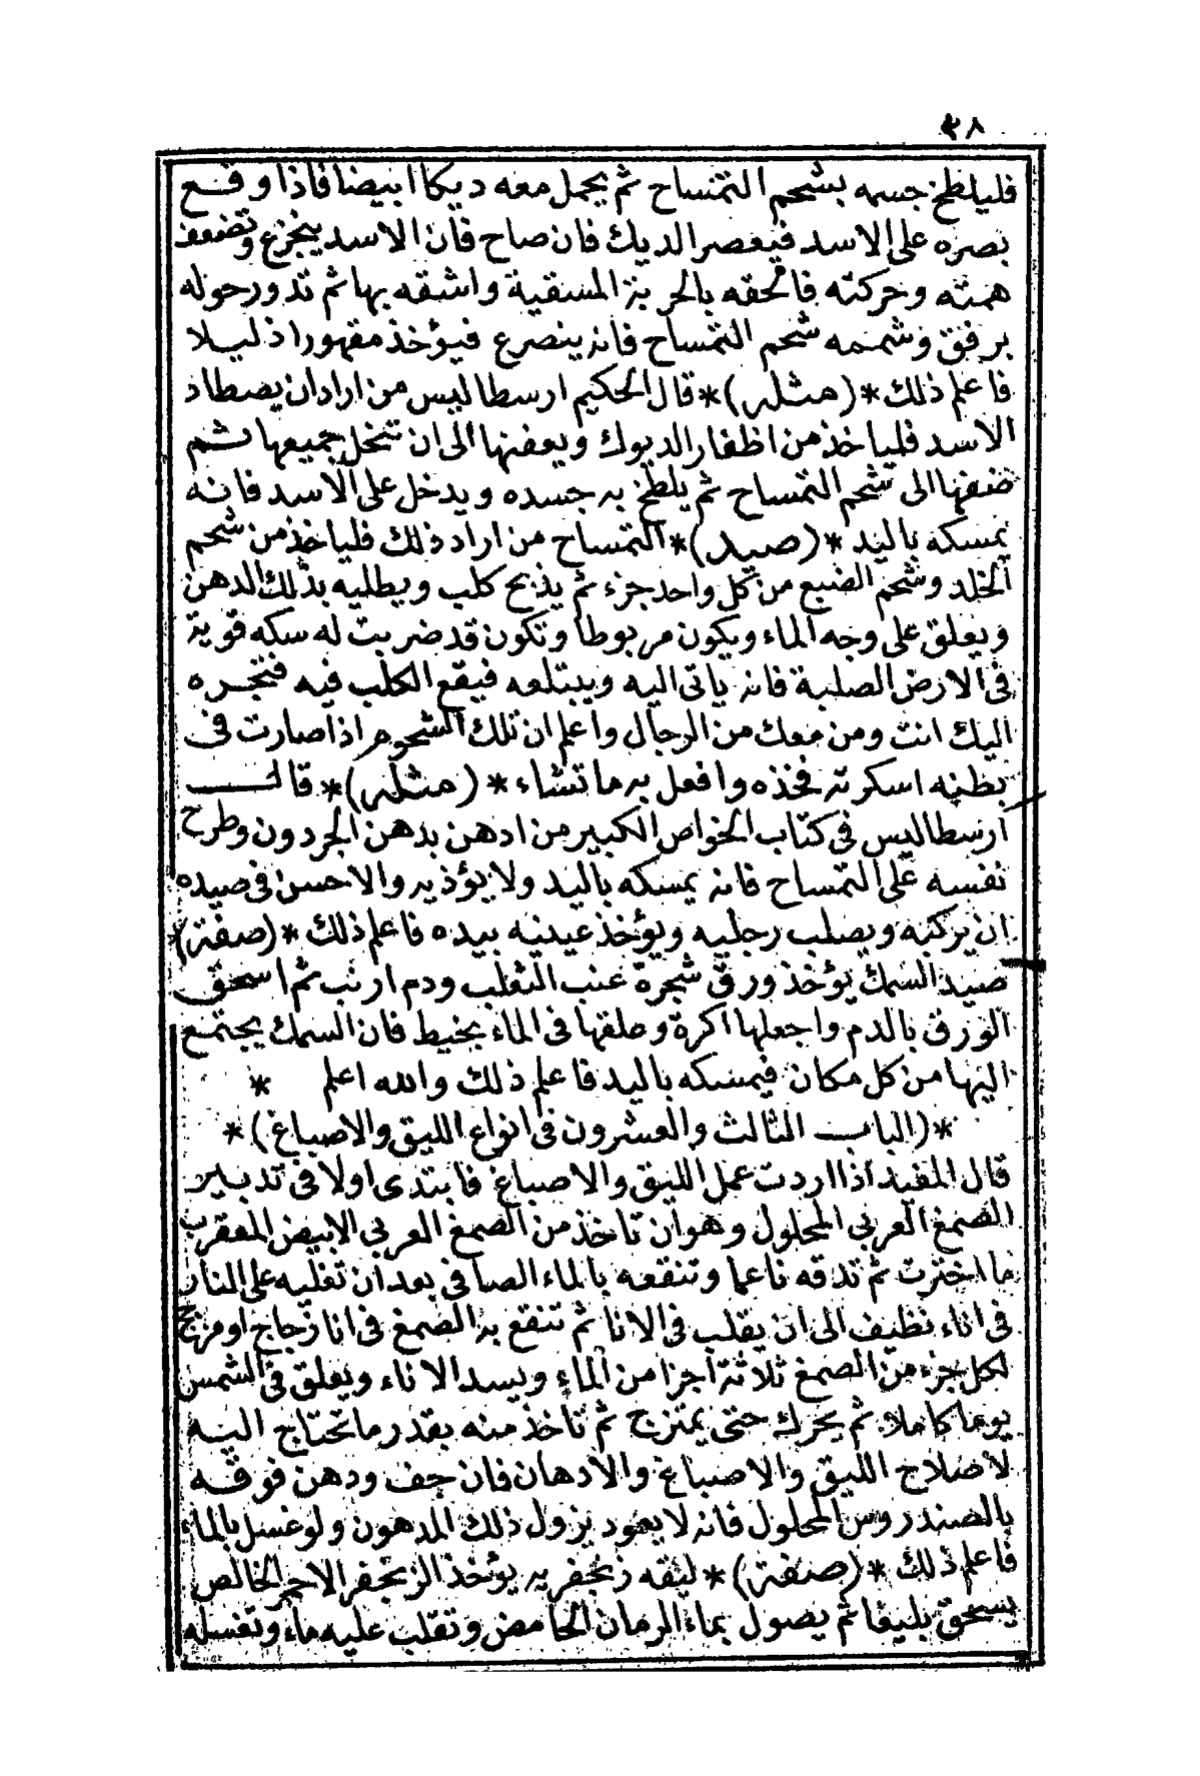 ٤٨
فليلطخ جسمه بشحم التمساح ثم يحمل معه ديكا ابيضا فاذا وقع
بصره على الاسد فيعصر الديك فان صاح فان الاسد ينجزع وتضعف
همته وحركته فالحقه بالحربة المسقية واشقه بها ثم تدور حوله
برفق وشممه شحم التمساح فانه ينصرع فيؤخذ مقهورا ذليلا
فاعلم ذلك *(مثله)* قال الحكيم ارسطاليس من اراد ان يصطاد
الاسد فلياخذ من اظفار الديوك ويعفنها الى ان تنخل جميعها ثم
ضفها الى شحم التمساح ثم يلطخ به جسده ويدخل على الاسد فانه
يمسكه باليد *(صيد)* التمساح من اراد ذلك فلياخذ من شحم
الخلد وشحم الضبع من كل واحد جزء ثم يذبح كلب ويطليه بذلك الدهن
ويعلق على وجه الماء ويكون مربوطا وتكون قد ضربت له سكه قوية
فى الارض الصلبة فانه ياتى اليه ويبتلعه فيقع الكلب فيه فتجره
اليك انت ومن معك من الرجال واعلم ان تلك الشحوم اذا صارت فى
بطنه اسكرته فخذه وافعل به ما تشاء *(مثله)* قال
ارسطاليس فى كتاب الخواص الكبير من ادهن بدهن الجردون وطرح
نفسه على التمساح فانه يمسكه باليد ولا يؤذيه والاحسن فى صيده
ان يركبه ويصلب رجليه ويؤخذ عينيه بيده فاعلم ذلك *(صفة)*
صيد السمك يؤخذ ورق شجرة عنب الثعلب ودم ارنب ثم اسحق
الورق بالدم واجعلها اكرة وعلقها فى الماء بخيط فان السمك يجتمع
اليها من كل مكان فيمسكه باليد فاعلم ذلك والله اعلم *
*(الباب الثالث والعشرون فى انواع الليق والاصباغ)*
قال المفيد اذا اردت عمل الليق والاصباغ فابتدى اولا فى تدبير
الصمغ العربى المحلول وهو ان تاخذ من الصمغ العربى الابيض المعقرب
ما اخترت ثم تدقه ناعما وتنقعه بالماء الصافى بعد ان تغليه على النار
فى اناء نظيف الى ان يقلب فى الانا ثم تنقع به الصمغ فى انا زجاج او مزجج
لكل جزء من الصمغ ثلاثة اجزا من الماء ويسد الاناء ويعلق فى الشمس
يوما كاملا ثم يحرك حتى يمتزج ثم تاخذ منه بقدر ما تحتاج اليه
لاصلاح الليق والاصباغ والادهان فان جف ودهن فوقه
بالصندروس المحلول فانه لا يعود يزول ذلك المدهون ولو غسل بالماء
فاعلم ذلك *(صفة)* ليقه زنجفريه يؤخذ الزنجفر الاحمر الخالص
يسحق بليغا ثم يصول بماء الرمان الحامض وتقلب عليه ماء وتغسله